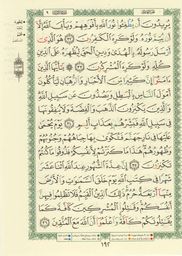 يُرِيدُونَ أَن يُطْفِـُٔوا۟ نُورَ ٱللَّهِ بِأَفْوَٰهِهِمْ وَيَأْبَى ٱللَّهُ إِلَّآ
أَن يُتِمَّ نُورَهُۥ وَلَوْ كَرِهَ ٱلْكَـٰفِرُونَ ٣٢ هُوَ ٱلَّذِىٓ
أَرْسَلَ رَسُولَهُۥ بِٱلْهُدَىٰ وَدِينِ ٱلْحَقِّ لِيُظْهِرَهُۥ عَلَى ٱلدِّينِ
كُلِّهِۦ وَلَوْ كَرِهَ ٱلْمُشْرِكُونَ ٣٣ يَـٰٓأَيُّهَا ٱلَّذِينَ
ءَامَنُوٓا۟ إِنَّ كَثِيرًا مِّنَ ٱلْأَحْبَارِ وَٱلرُّهْبَانِ لَيَأْكُلُونَ
أَمْوَٰلَ ٱلنَّاسِ بِٱلْبَـٰطِلِ وَيَصُدُّونَ عَن سَبِيلِ ٱللَّهِ
وَٱلَّذِينَ يَكْنِزُونَ ٱلذَّهَبَ وَٱلْفِضَّةَ وَلَا يُنفِقُونَهَا
فِى سَبِيلِ ٱللَّهِ فَبَشِّرْهُم بِعَذَابٍ أَلِيمٍ ٣٤ يَوْمَ
يُحْمَىٰ عَلَيْهَا فِى نَارِ جَهَنَّمَ فَتُكْوَىٰ بِهَا جِبَاهُهُمْ وَجُنُوبُهُمْ
وَظُهُورُهُمْ هَـٰذَا مَا كَنَزْتُمْ لِأَنفُسِكُمْ فَذُوقُوا۟ مَا كُنتُمْ
تَكْنِزُونَ ٣٥ إِنَّ عِدَّةَ ٱلشُّهُورِ عِندَ ٱللَّهِ ٱثْنَا عَشَرَ
شَهْرًا فِى كِتَـٰبِ ٱللَّهِ يَوْمَ خَلَقَ ٱلسَّمَـٰوَٰتِ وَٱلْأَرْضَ
مِنْهَآ أَرْبَعَةٌ حُرُمٌ ذَٰلِكَ ٱلدِّينُ ٱلْقَيِّمُ فَلَا تَظْلِمُوا۟ فِيهِنَّ
أَنفُسَكُمْ وَقَـٰتِلُوا۟ ٱلْمُشْرِكِينَ كَآفَّةً كَمَا
يُقَـٰتِلُونَكُمْ كَآفَّةً وَٱعْلَمُوٓا۟ أَنَّ ٱللَّهَ مَعَ ٱلْمُتَّقِينَ ٣٦
١٩٢